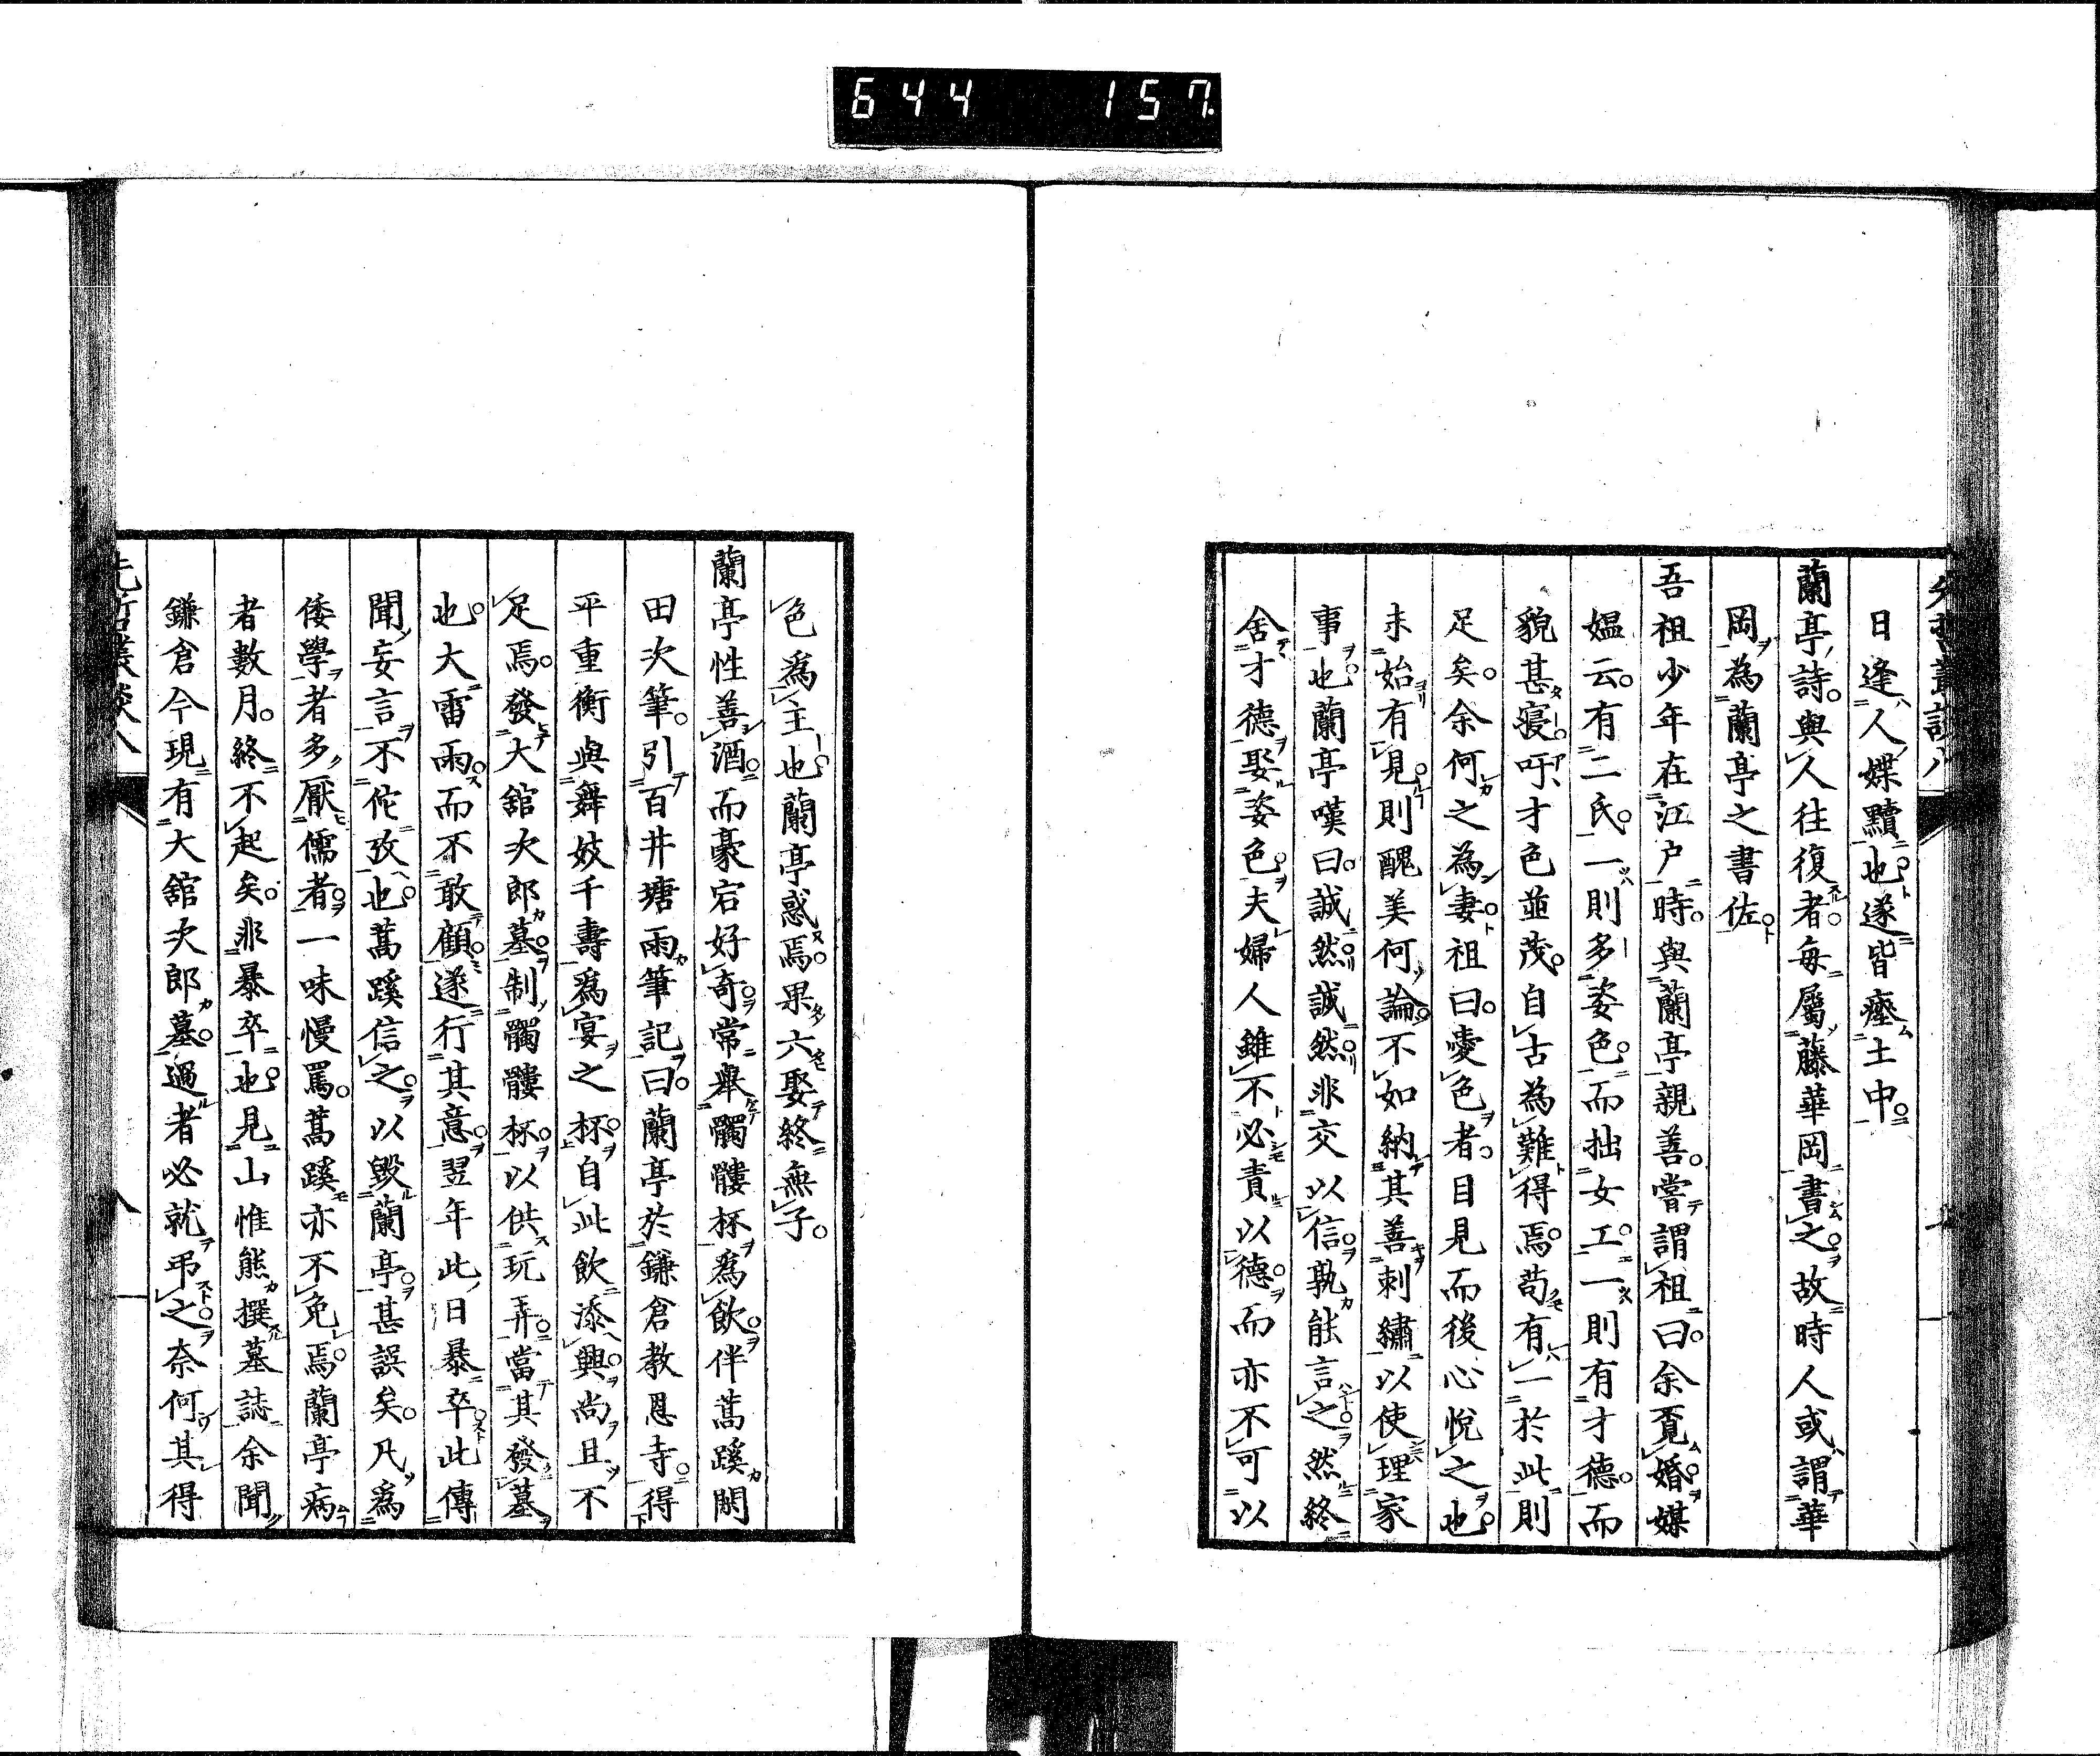 644 157
日逢人媟黷也遂皆瘞土中
蘭亭詩與人往復者每屬藤華岡書之故時人或謂華
岡為蘭亭之書佐
吾祖少年在江户時與蘭亭親善嘗謂祖曰余覓婚媒
媼云有二氏一則多姿色而拙女工一則有才德而
貌甚寝吁才色並茂自古為難得焉苟有一於此則
足矣余何之為妻祖曰愛色者目見而後心悅之也
未始有見則醜美何論不如納其善刺繡以使理家
事也蘭亭嘆曰誠然誠然非交以信孰能言之然終
舍才德娶姿色夫婦人雖不必責以德而亦不可以
色爲主也蘭亭惑焉果六娶終無子
蘭亭性善酒而豪宕好奇常舉髑髏杯爲飲伴蒿蹊閑
田次筆引百井塘雨筆記曰蘭亭於鎌倉教恩寺得
平重衡與舞妓千壽爲宴之杯自此飲添興尚且不
足焉發大舘次郎墓制髑髏杯以供玩弄當其發墓
也大雷雨而不敢顧遂行其意翌年此日暴卒此傳
聞妄言不佗攷也蒿蹊信之以毀蘭亭甚誤矣凡爲
倭學者多厭儒者一味慢罵蒿蹊亦不免焉蘭亭病
者數月終不起矣非暴卒也見山惟熊撰墓誌余聞
鎌倉今現有大舘次郎墓過者必就弔之奈何其得
先哲叢談八